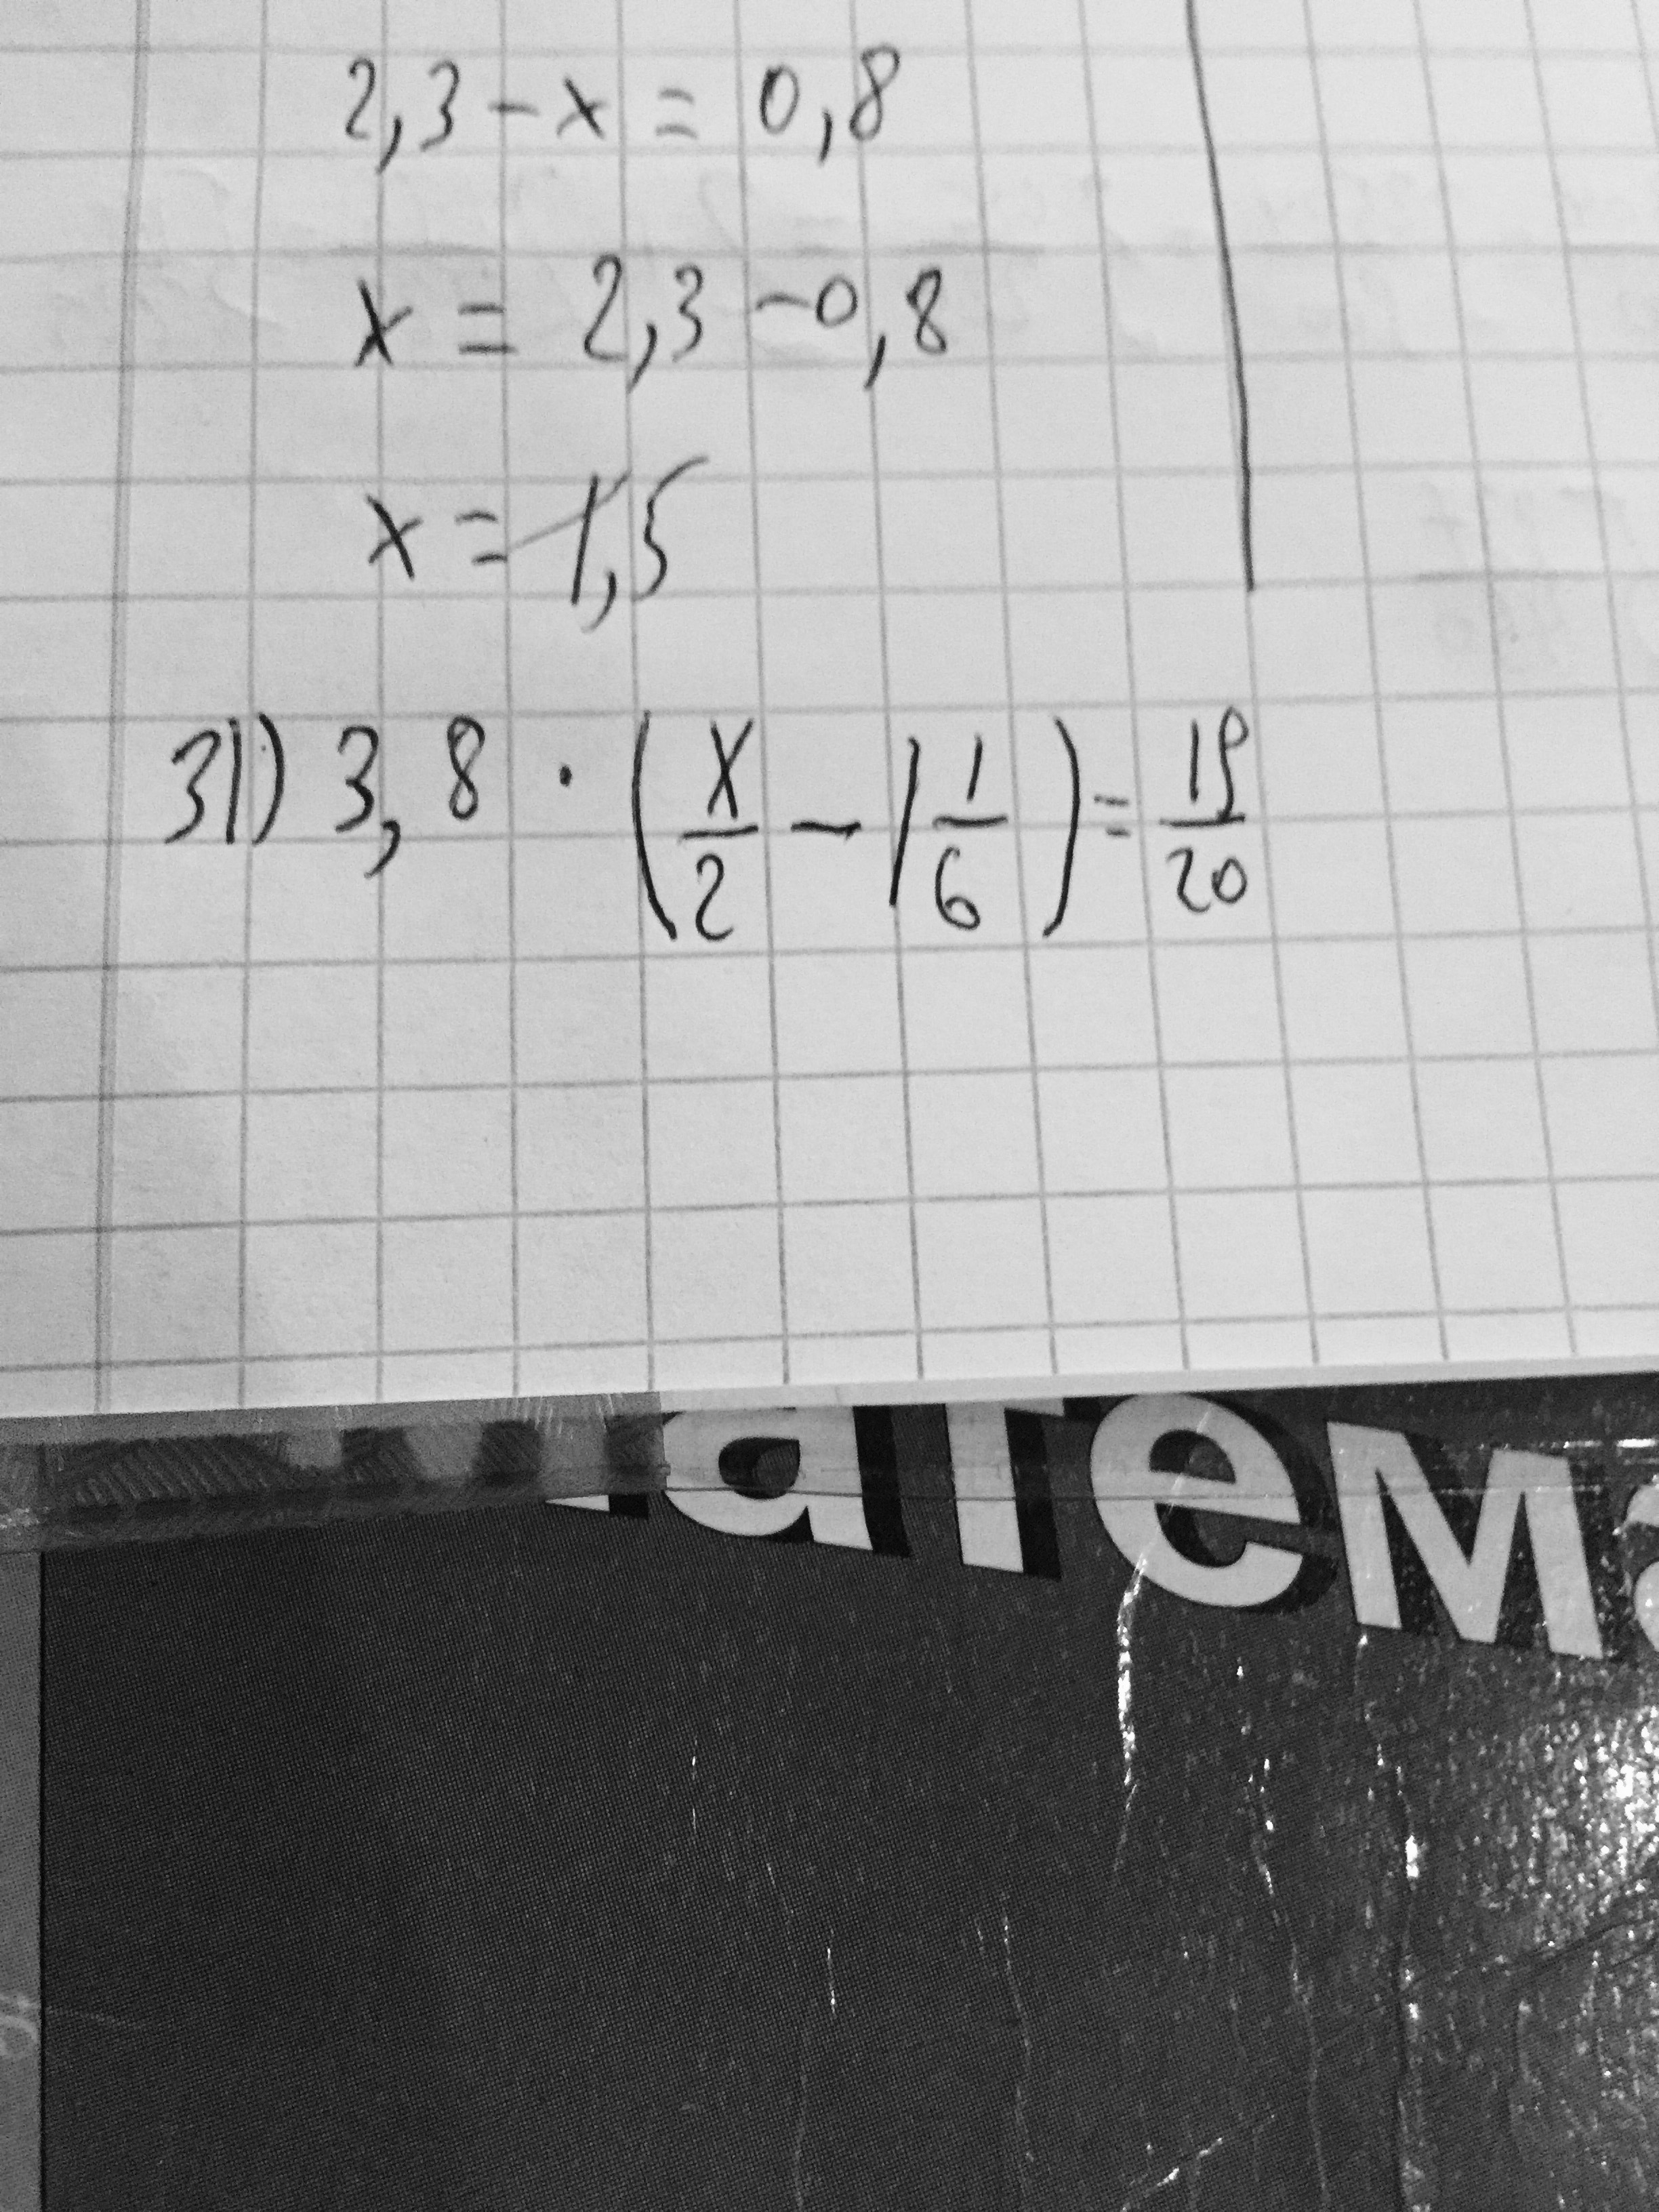 2,3 - x = 0,8
x = 2,3 - 0,8
x = 1,5
31) 3,8 · (x/2 - 1 1/6) = 19/20
атема